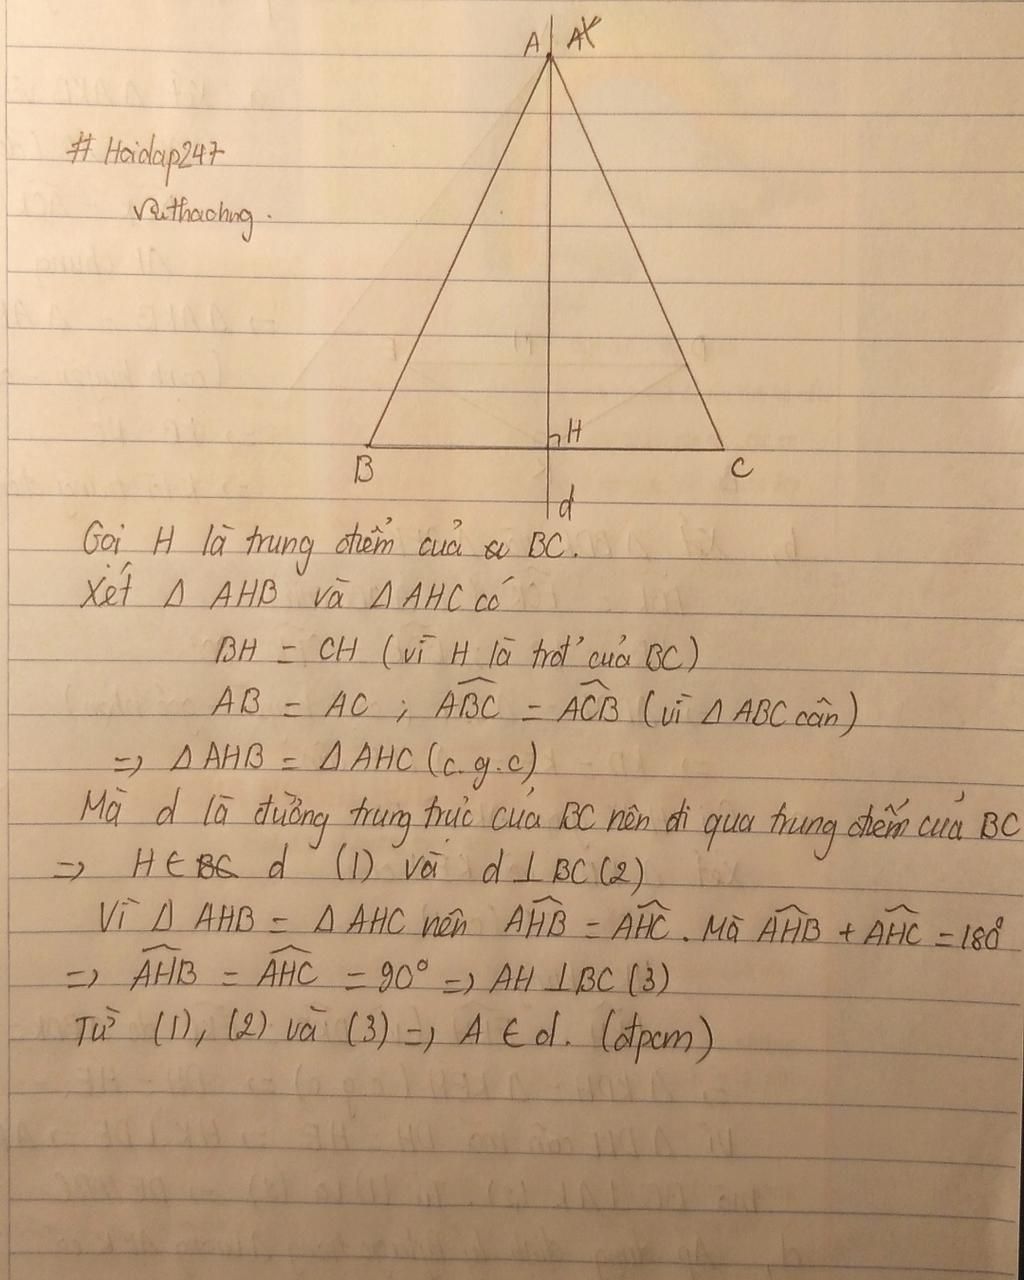 A
# Hoidap247
Vuthachng.
H
B
C
d
Gọi H là trung điểm của BC.
Xét Δ AHB và Δ AHC có
BH = CH (vì H là trđ' của BC)
AB = AC ; \widehat{ABC} = \widehat{ACB} (vì Δ ABC cân)
=> Δ AHB = Δ AHC (c.g.c)
Mà d là đường trung trực của BC nên đi qua trung điểm của BC
=> H ∈ d (1) và d ⊥ BC (2)
Vì Δ AHB = Δ AHC nên \widehat{AHB} = \widehat{AHC}. Mà \widehat{AHB} + \widehat{AHC} = 180°
=> \widehat{AHB} = \widehat{AHC} = 90° => AH ⊥ BC (3)
Từ (1), (2) và (3) => A ∈ d. (đpcm)